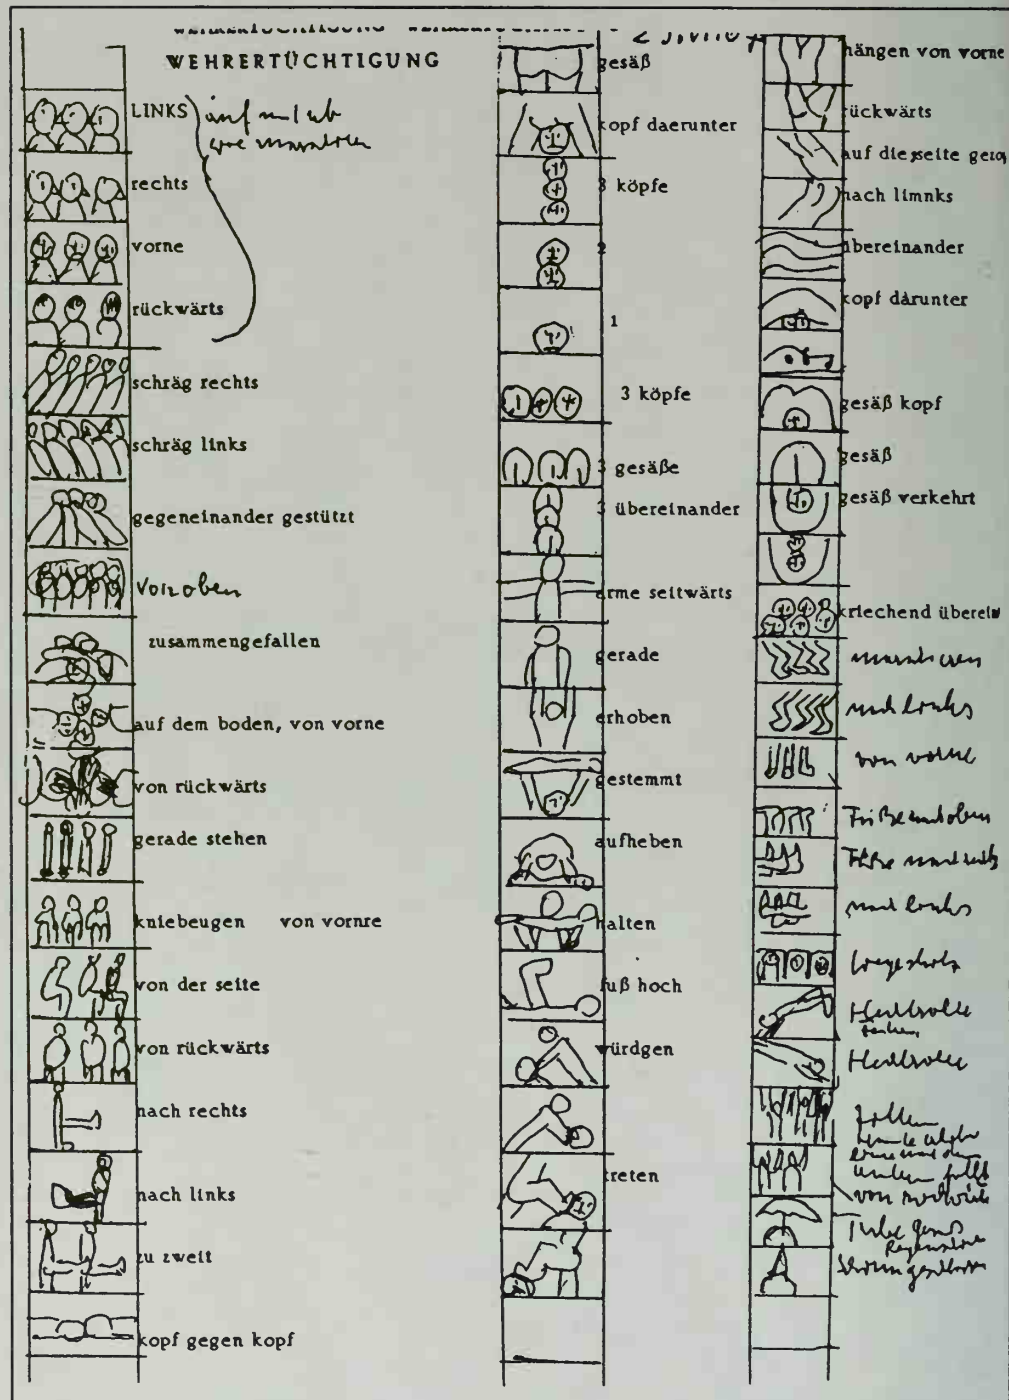 WEHRERTÜCHTIGUNG
LINKS
rechts
vorne
rückwärts
schräg rechts
schräg links
gegeneinander gestützt
Von oben
zusammengefallen
auf dem boden, von vorne
von rückwärts
gerade stehen
kniebeugen von vornre
von der seite
von rückwärts
nach rechts
nach links
zu zweit
kopf gegen kopf
gesäß
kopf daerunter
3 köpfe
2
1
3 köpfe
3 gesäße
3 übereinander
arme seitwärts
gerade
erhoben
gestemmt
aufheben
halten
fuß hoch
würdgen
treten
hängen von vorne
rückwärts
auf die seite
nach limnks
übereinander
kopf darunter
gesäß kopf
gesäß
gesäß verkehrt
kriechend überein
marschieren
nach links
von vorne
Füße nach oben
nach links